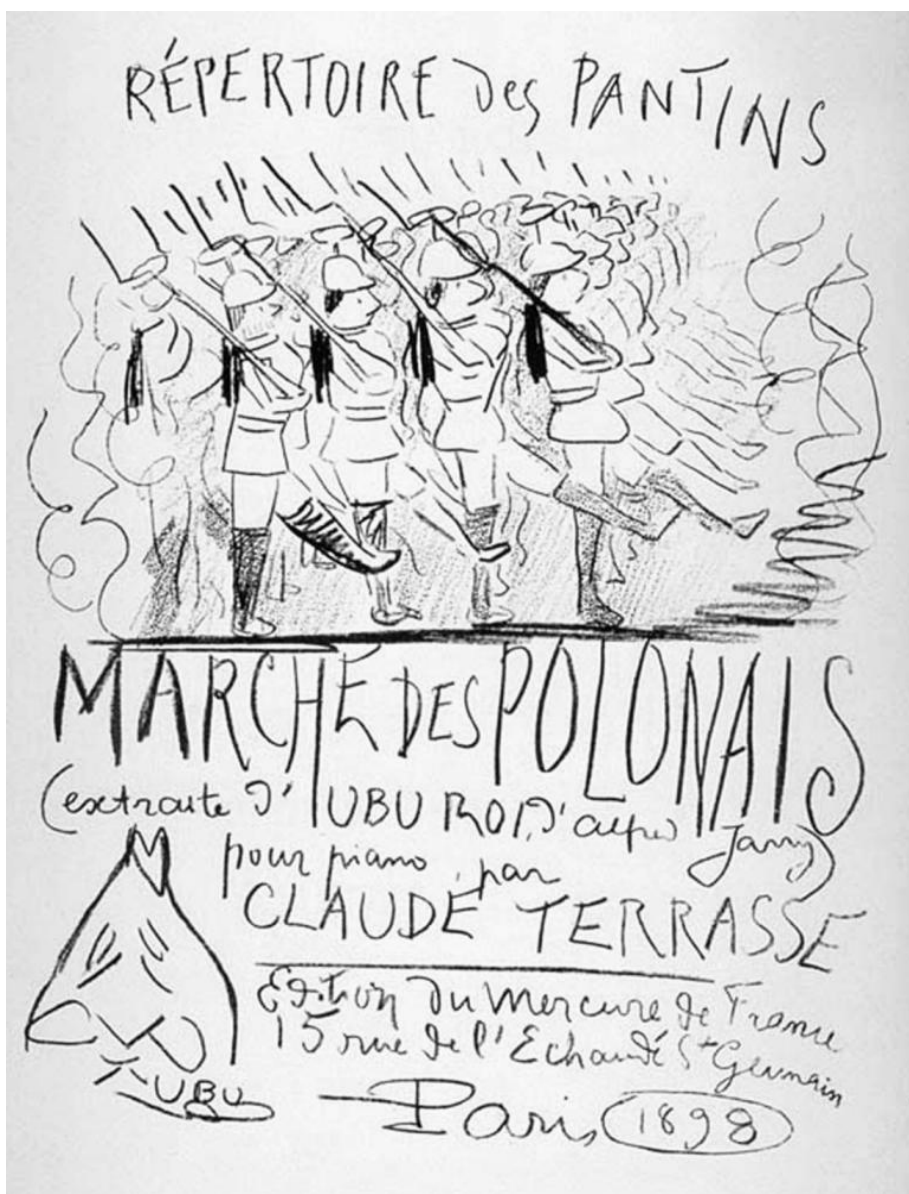 RÉPERTOIRE des PANTINS
MARCHE DES POLONAIS
(extraite d'UBU ROI, d'alfred Jarry)
pour piano, par
CLAUDE TERRASSE
Edition du Mercure de France
15 rue de l'Echaudé St Germain
UBU
Paris 1898